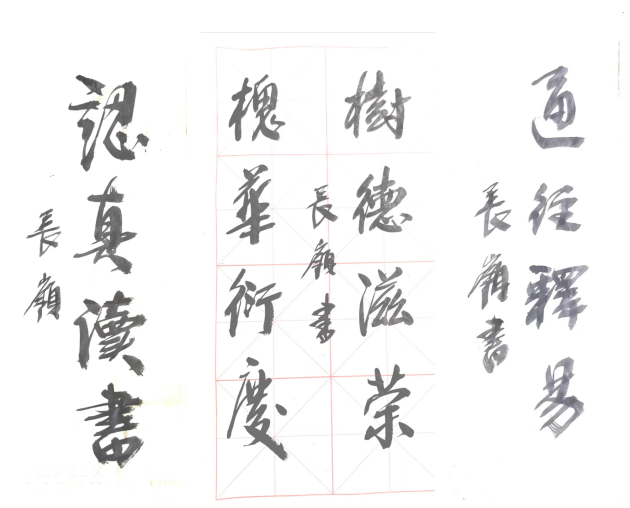 通经釋易
長嶺書
樹德滋荣
槐華衍慶
長嶺書
認真读書
長嶺